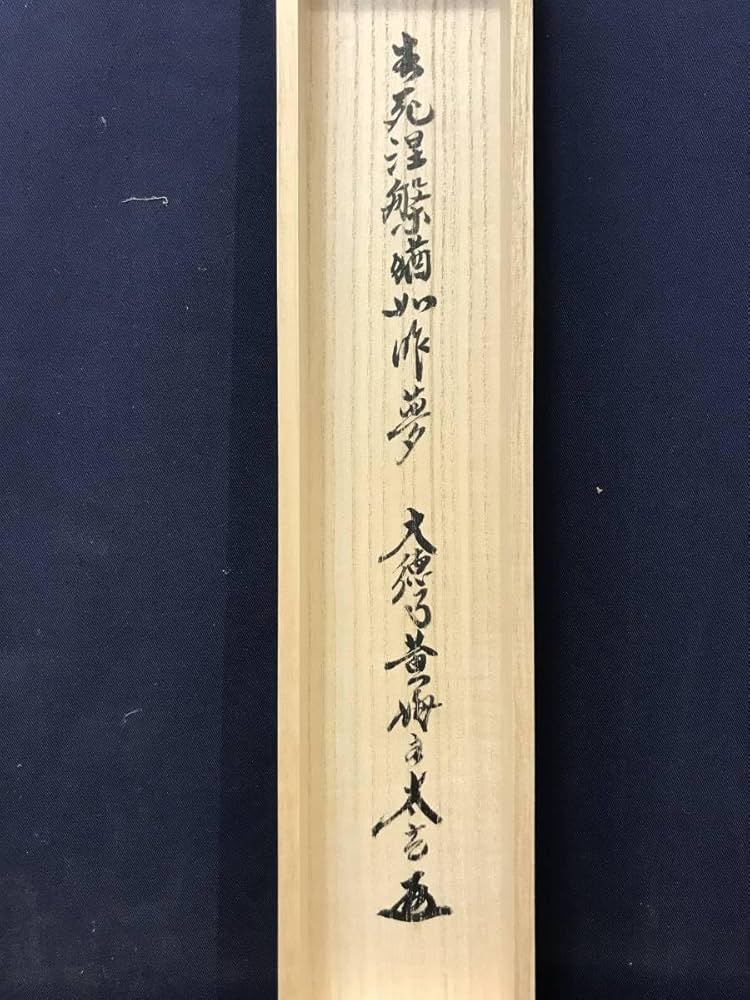 生死涅槃猶如昨夢 大徳黄梅主太玄